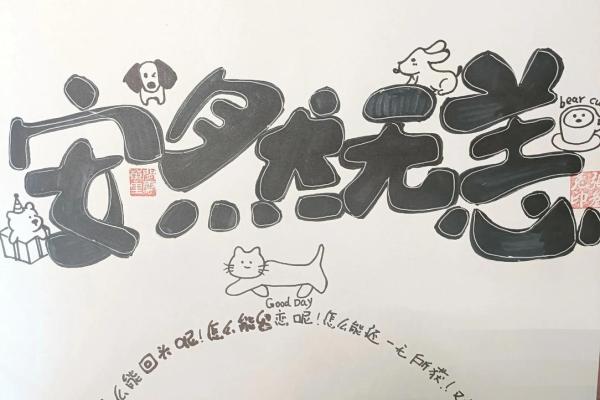 安然无恙
bear cu
Good Day
么能回头呢!怎么能留恋呢!怎么能还一无所获!!